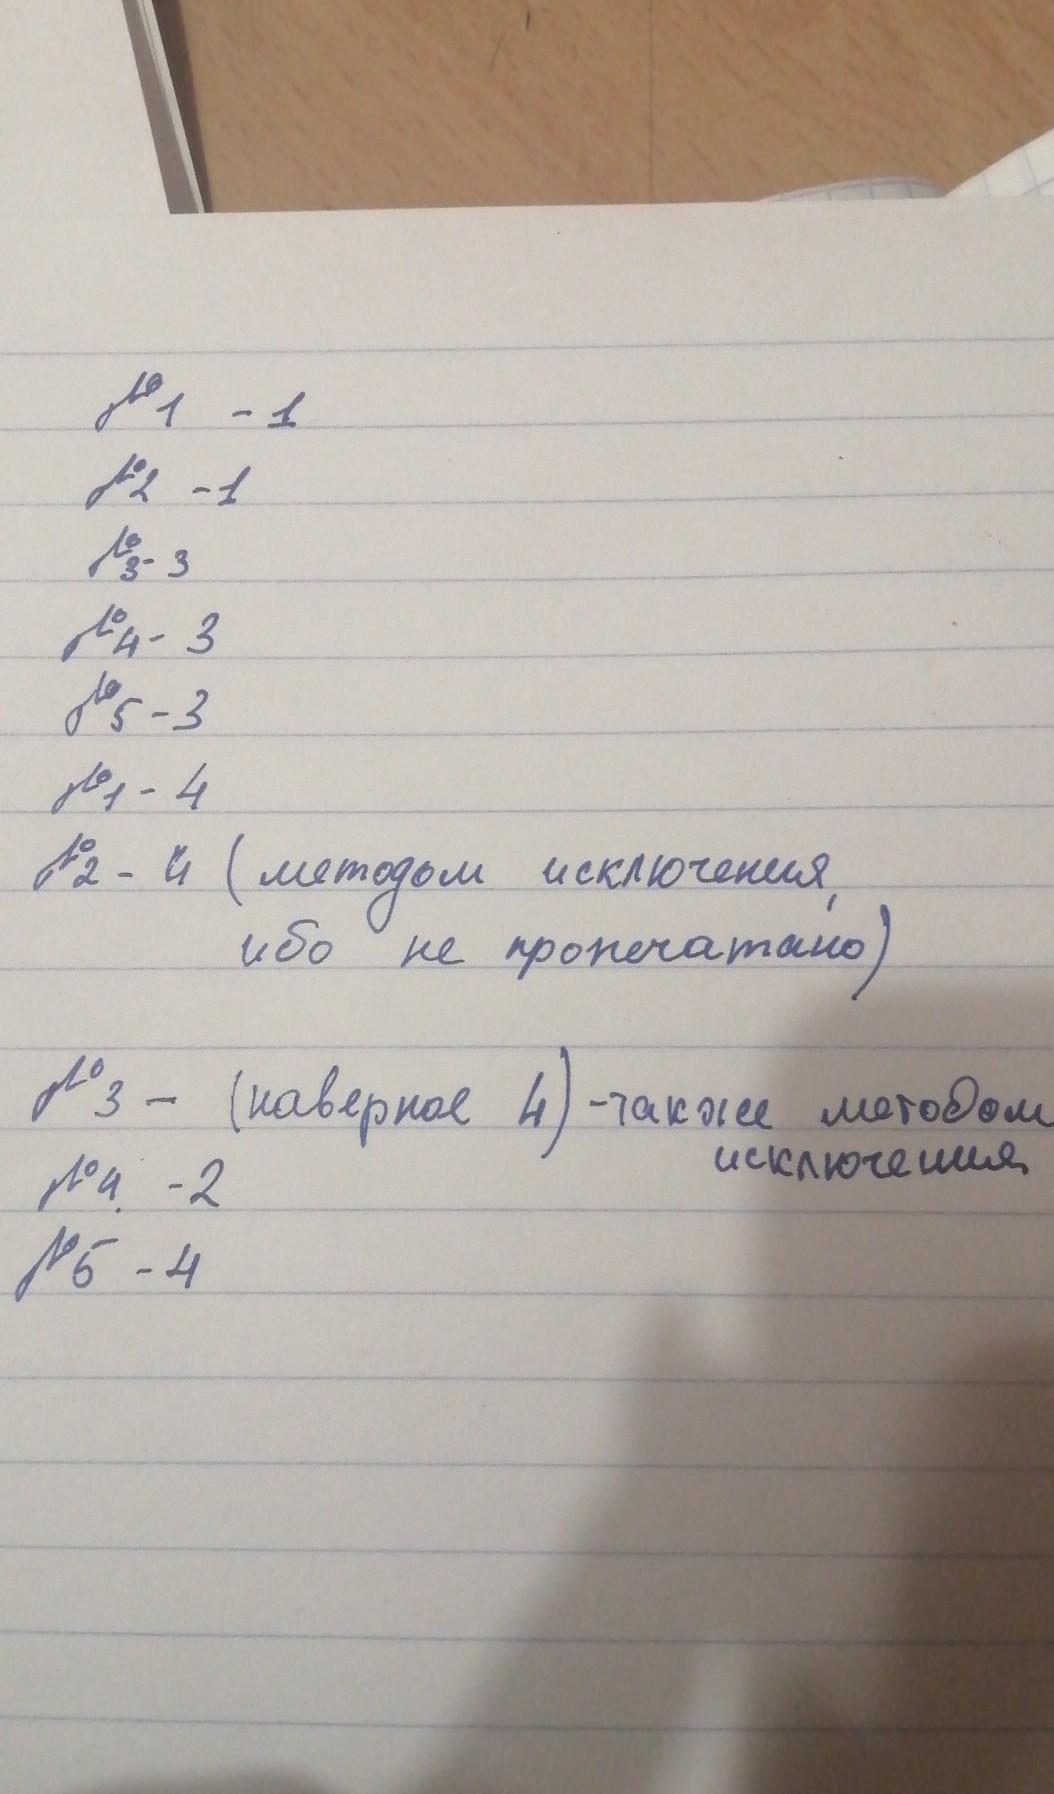 №1 - 1
№2 - 1
№3 - 3
№4 - 3
№5 - 3
№1 - 4
№2 - 4 (методом исключения,
ибо не пропечатано)
№3 - (наверное 4) - также методом
исключения
№4. - 2
№5 - 4